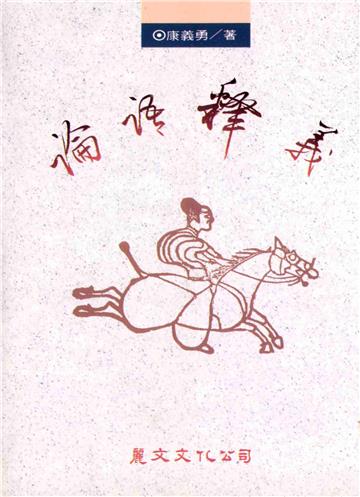 ◉康義勇／著
論語釋義
麗文文化公司